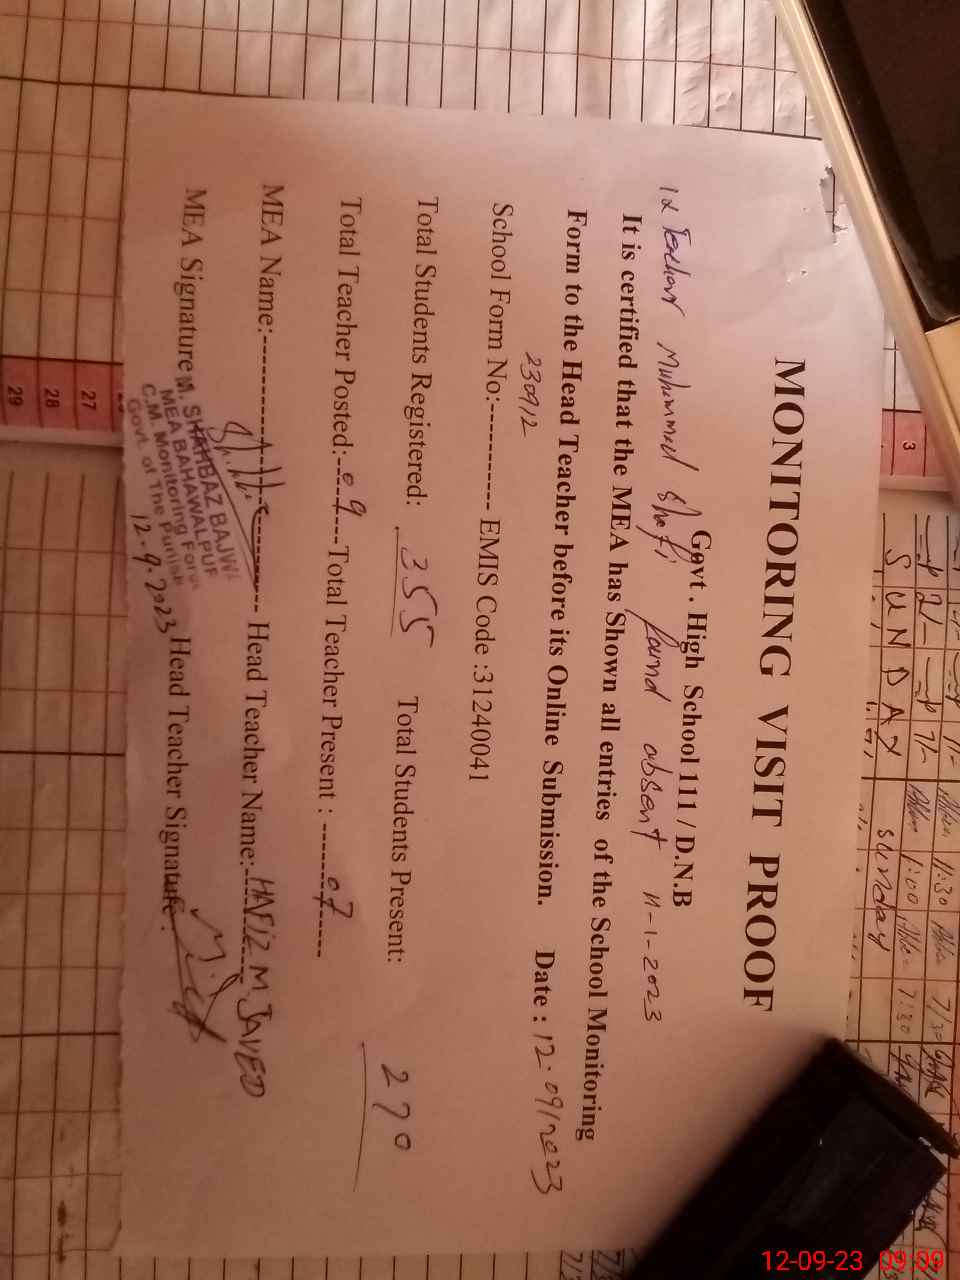 MONITORING VISIT PROOF
Govt. High School 111 / D.N.B
Teacher Muhammad Shafi found absent 11-1-2023
It is certified that the MEA has Shown all entries of the School Monitoring
Form to the Head Teacher before its Online Submission. Date : 12.09/2023
230912
School Form No:----------- EMIS Code :31240041
Total Students Registered: 355 Total Students Present: 270
Total Teacher Posted:---09----Total Teacher Present : --------07------
MEA Name:-------------------------- Head Teacher Name:-HAFIZ M JAVED
MEA Signature Head Teacher Signature:
M. SHAHBAZ BAJWA
MEA BAHAWALPUR
C.M. Monitoring Force
Govt. of The Punjab
12.9.2023
SUNDAY sunday
11:30
1:00
7:30
3
27
28
29
12-09-23 09:09